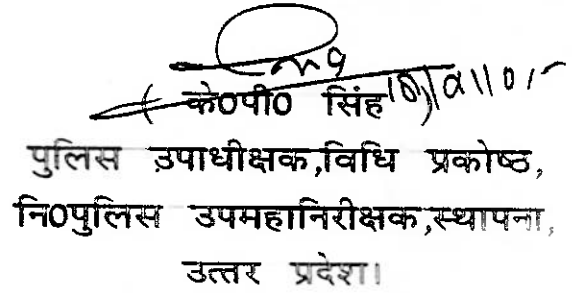 के0पी0 सिंह
पुलिस उपाधीक्षक,विधि प्रकोष्ठ,
नि0पुलिस उपमहानिरीक्षक,स्थापना,
उत्तर प्रदेश।